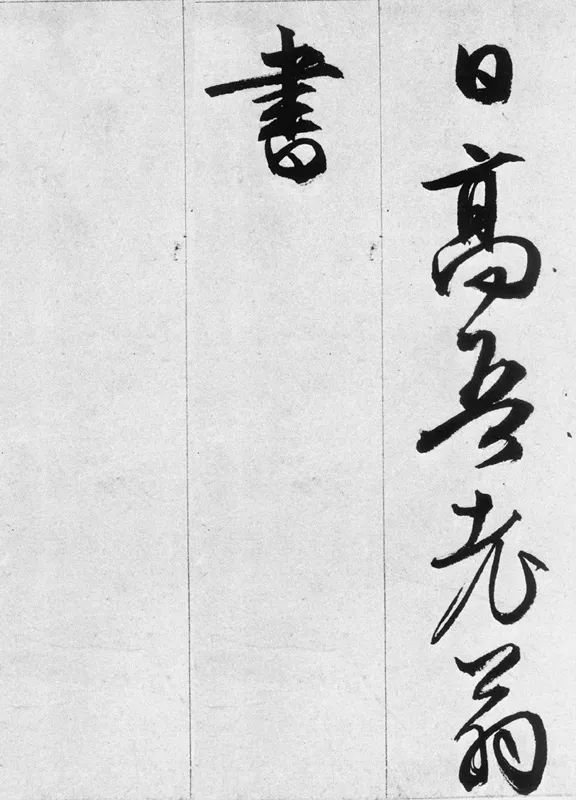 日高五老翁
書